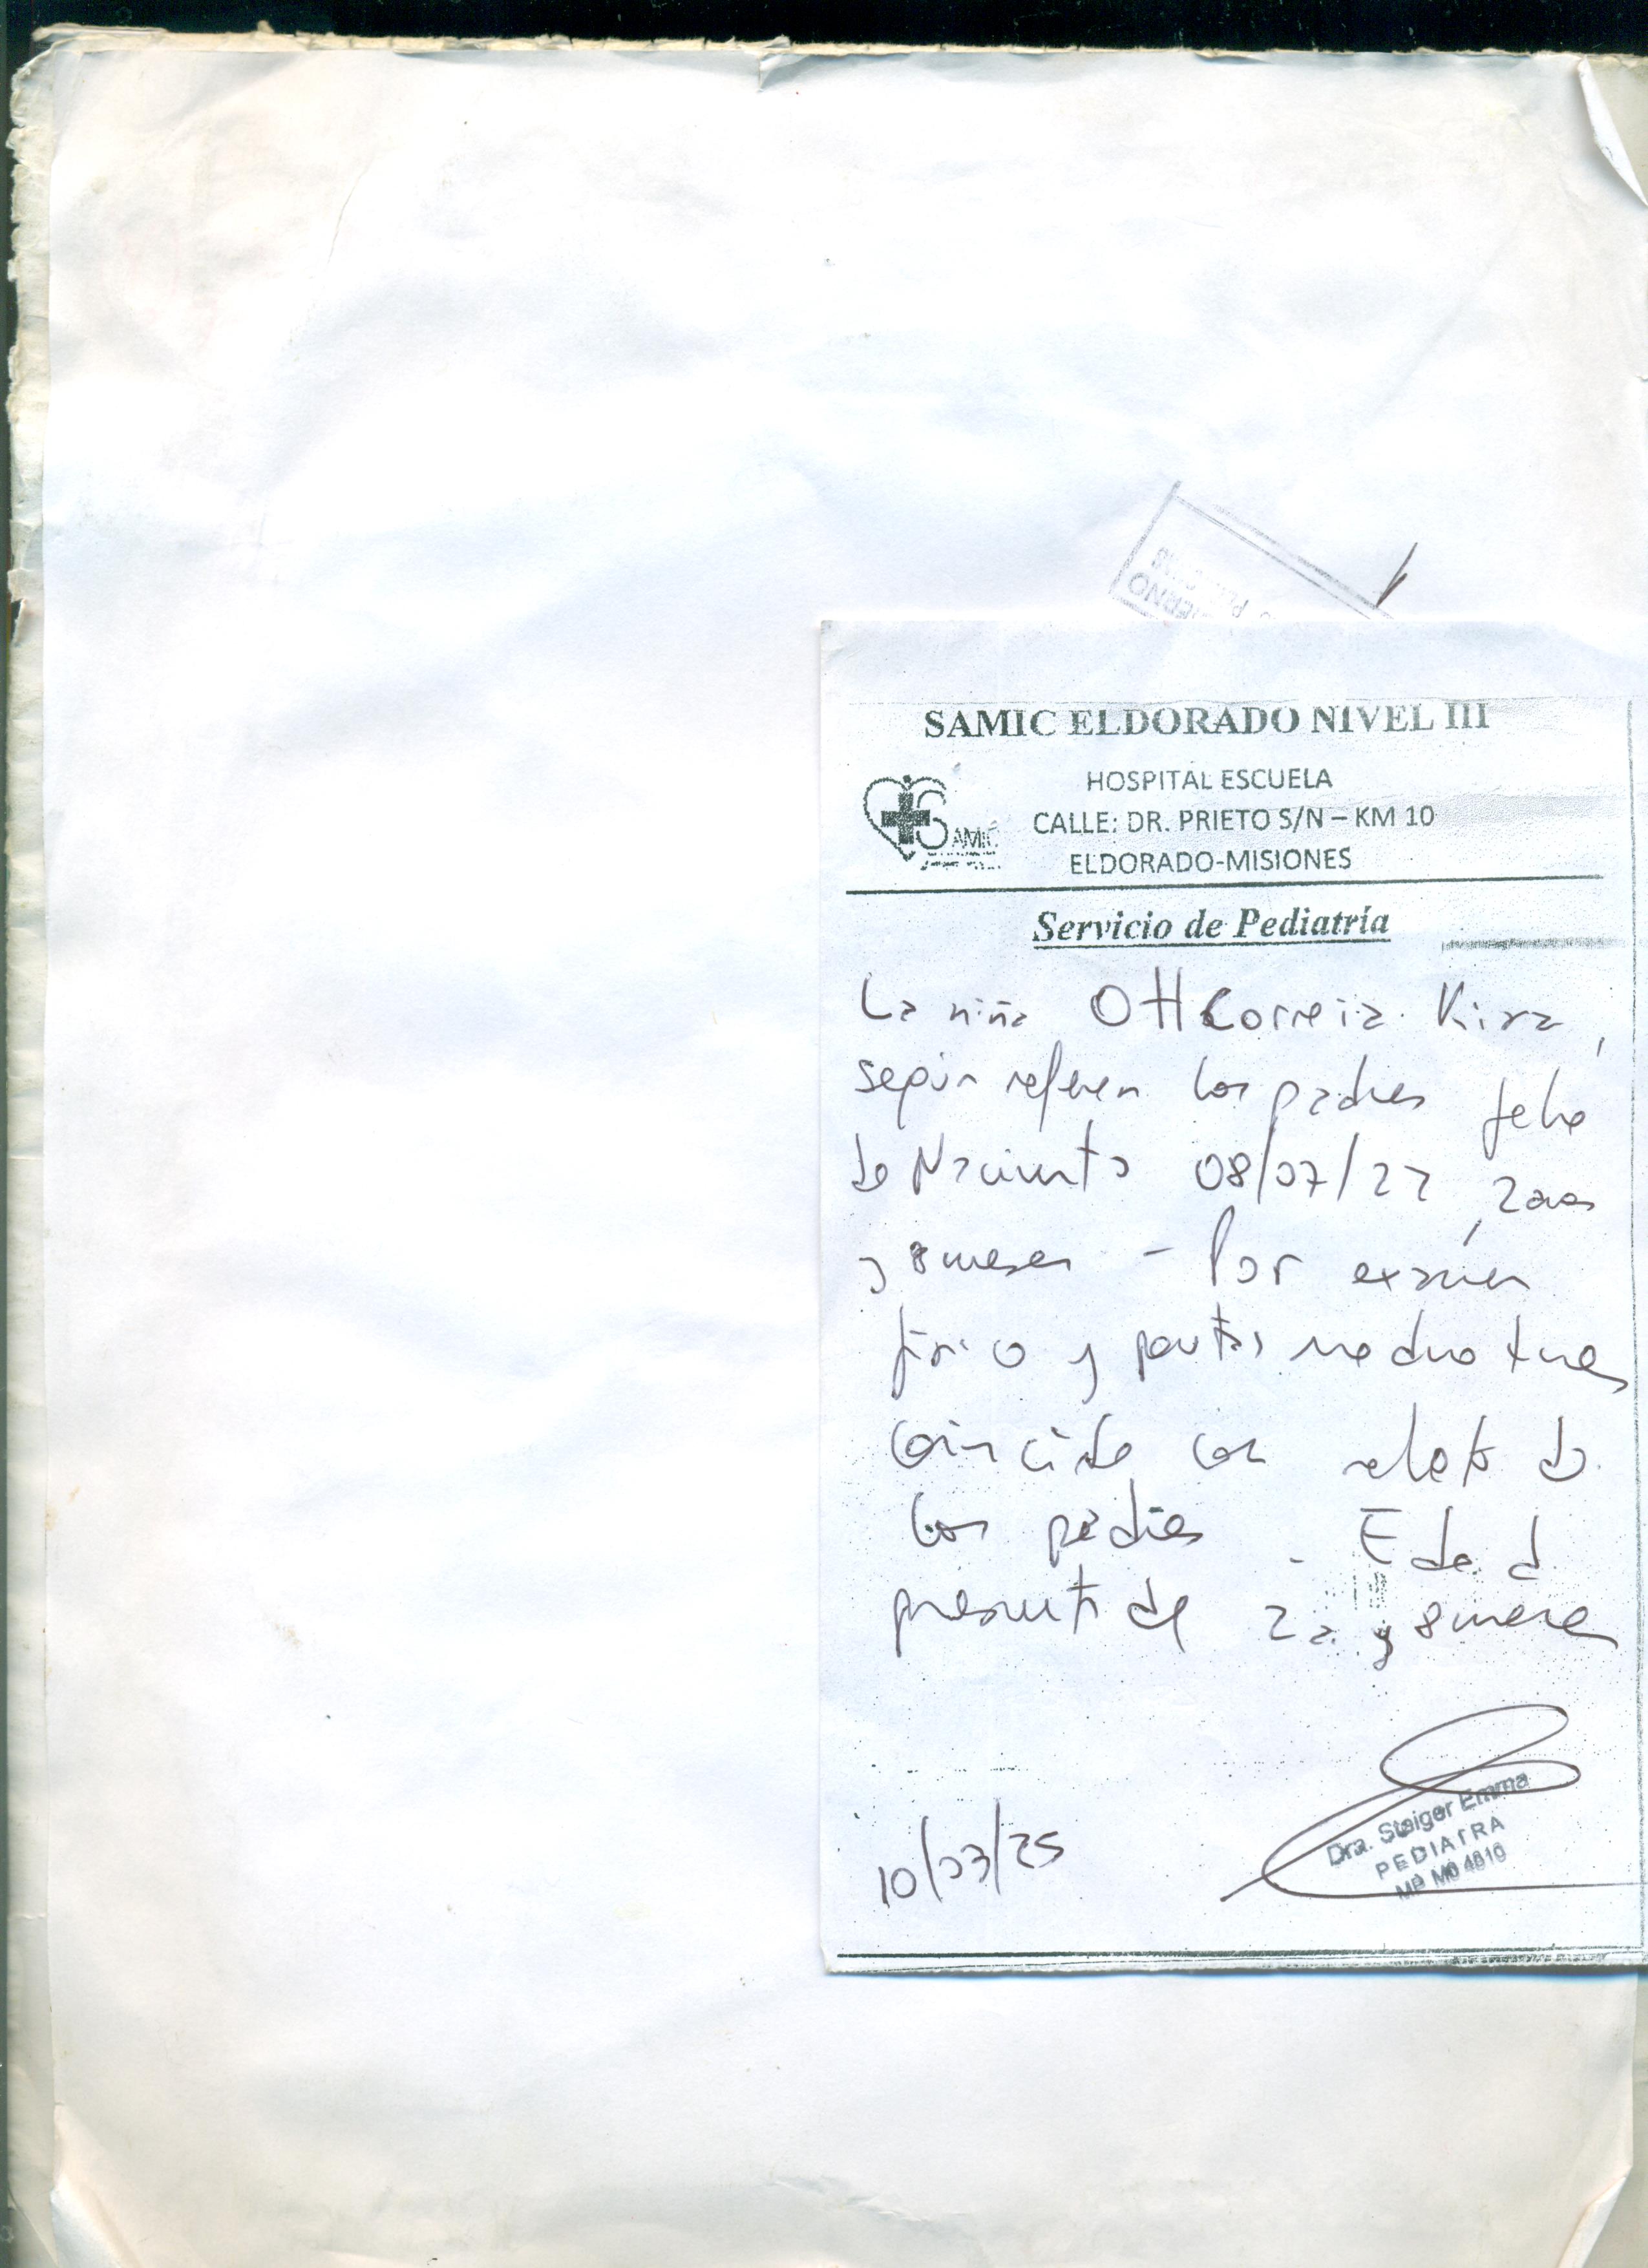 SAMIC ELDORADO NIVEL III
HOSPITAL ESCUELA
CALLE: DR. PRIETO S/N – KM 10
ELDORADO-MISIONES
SAMIC
Servicio de Pediatría
La niña OTT Correia Kira,
según refieren los padres fecha
de Nacimiento 08/07/22, 2 años
y 8 meses - Por examen
físico y pautas madurativas
coincide con relato de
los padres - Edad
presunta de 2 a. y 8 meses
10/03/25
Dra. Steiger Emma
PEDIATRA
MP Mº 4810